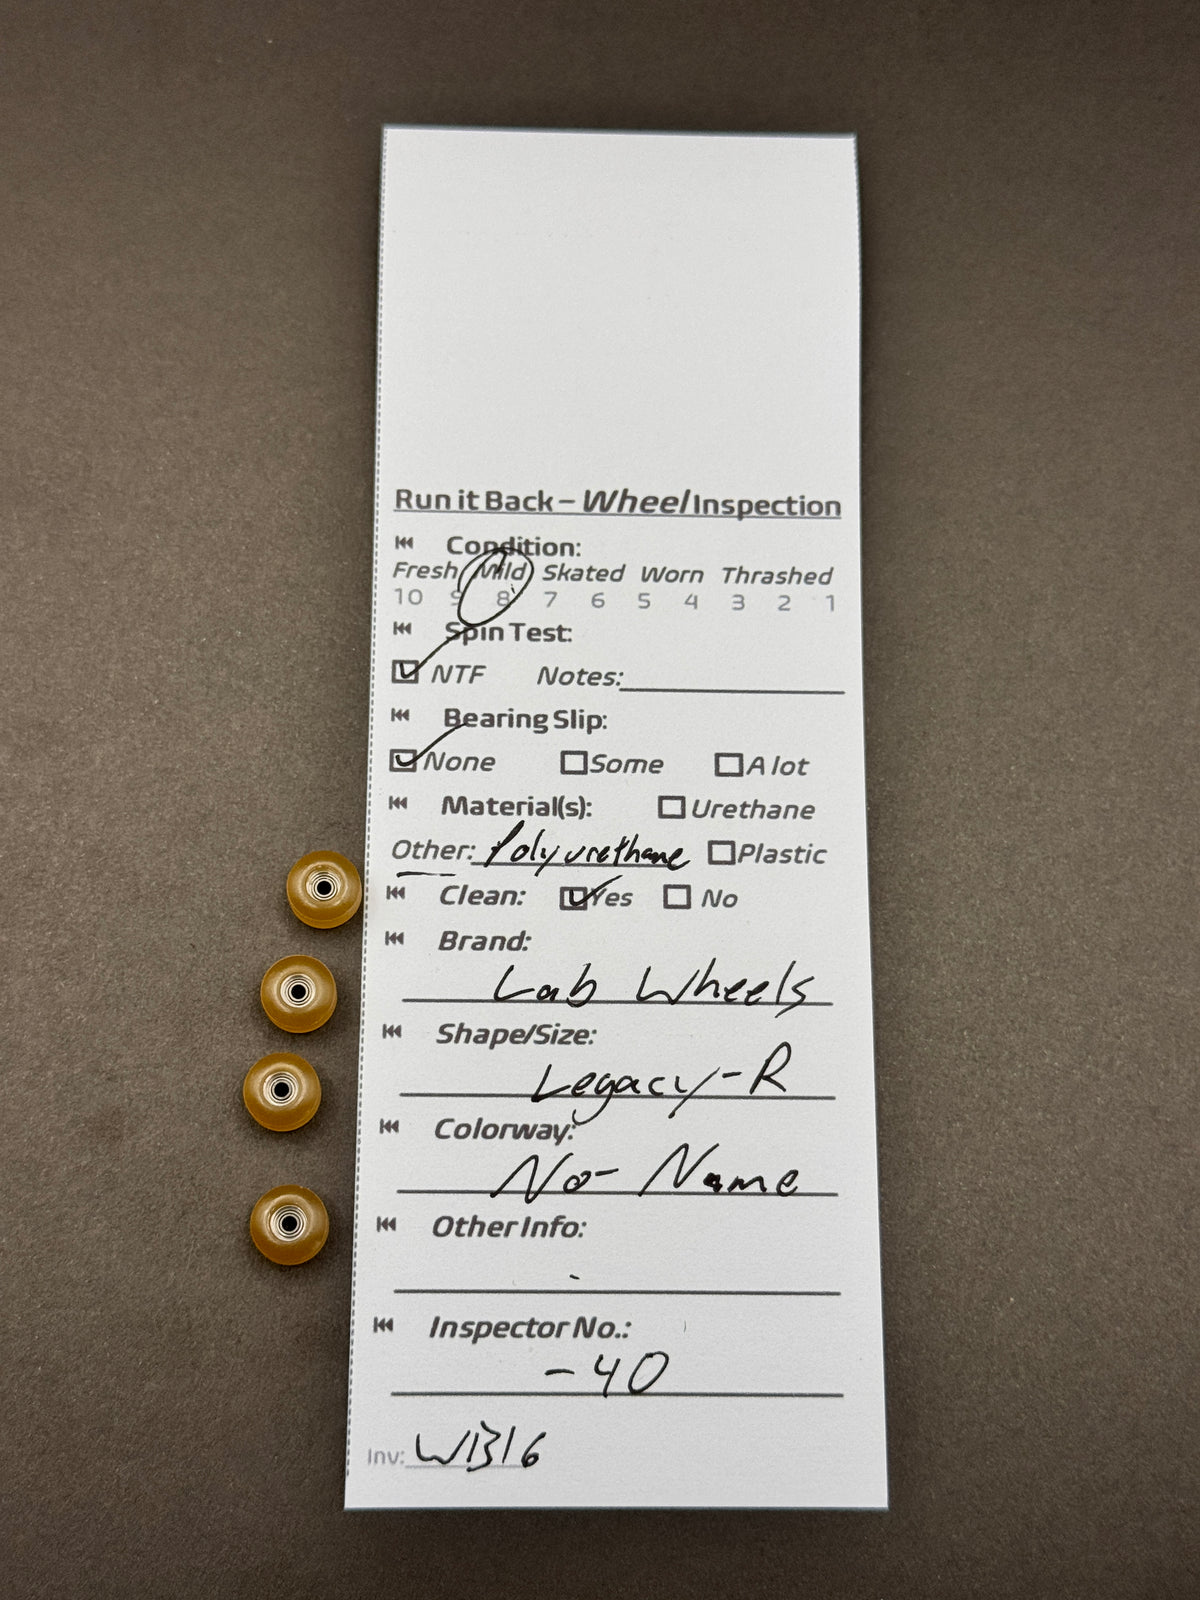 Run it Back – Wheel Inspection
Condition:
Fresh Mild Skated Worn Thrashed
10 9 8 7 6 5 4 3 2 1
Spin Test:
NTF Notes:
Bearing Slip:
None Some A lot
Material(s): Urethane
Other: Polyurethane Plastic
Clean: Yes No
Brand:
Lab Wheels
Shape/Size:
Legacy-R
Colorway:
No-Name
Other Info:
-
Inspector No.:
-40
Inv: WB16